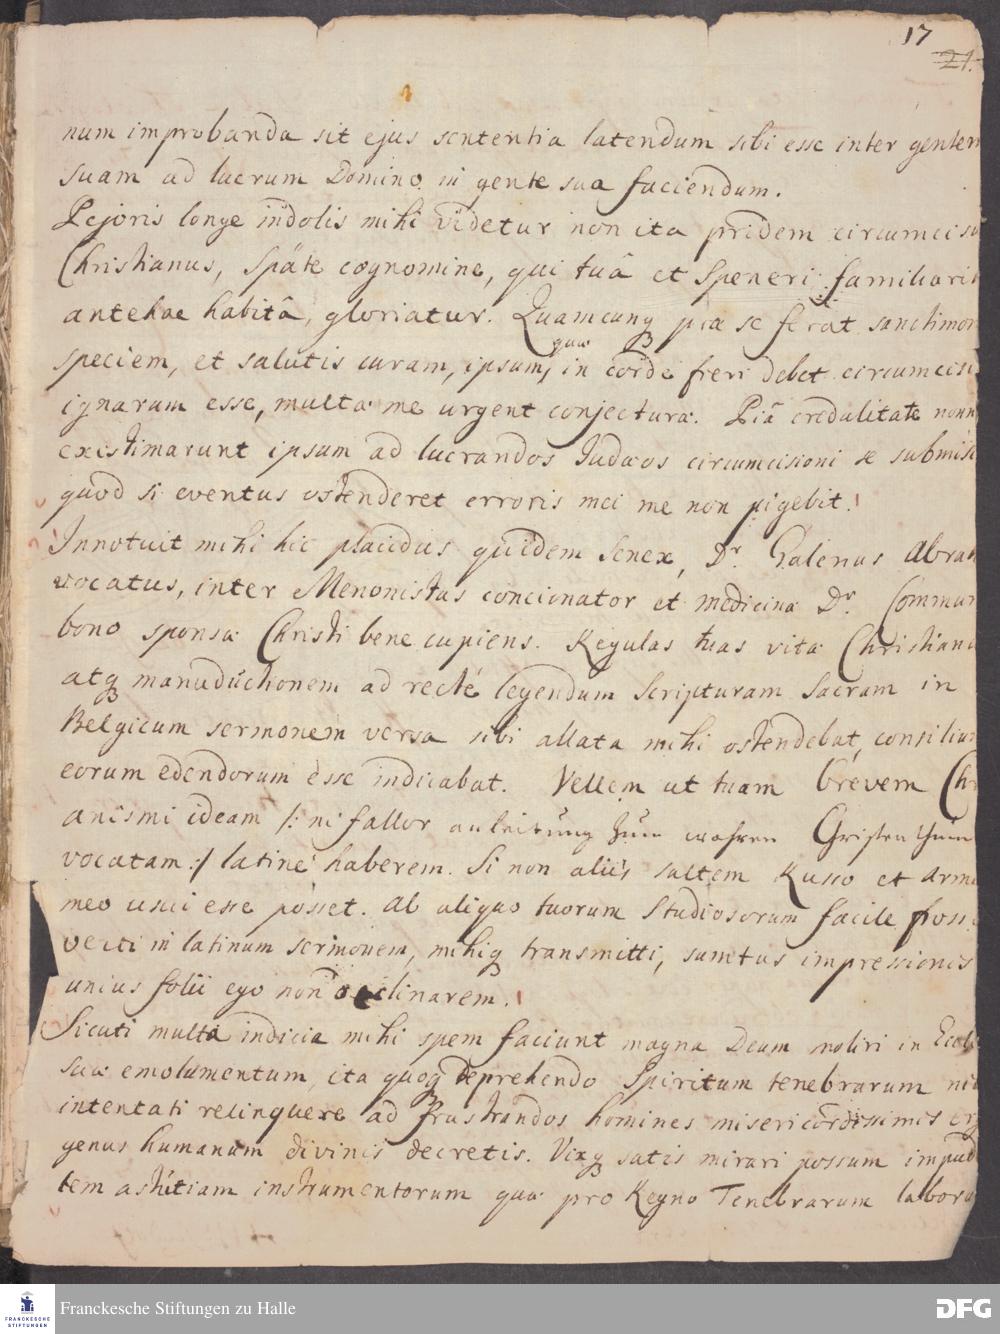 17
21.
num improbanda sit ejus sententia latendum sibi esse inter gentem
suam ad lucrum Domino in gente sua faciendum.
Pejoris longe indolis mihi videtur non ita pridem circumcisu
Christianus, Späte cognomine, qui tuâ et Speneri familiarit
antehac habitâ, gloriatur. Quamcunq præ se ferat sanctimon
speciem, et salutis curam, ipsum, quæ in corde fieri debet circumcisi
ignarum esse, multæ me urgent conjecturæ. Piâ credulitate nonn
existimarunt ipsum ad lucrandos Judæos circumcisioni se submis
quod si eventus ostenderet erroris mei me non pigebit.
Innotuit mihi hic placidus quidem Senex, Dr. Galenus Abrah
vocatus, inter Menonistas concionator et medicinæ Dr. Commun
bono sponsæ Christi bene cupiens. Regulas tuas vitæ Christianæ
atq manuductionem ad recté legendum Scripturam Sacram in
Belgicum sermonem versa sibi allata mihi ostendebat, consilium
eorum edendorum esse indicabat. Vellem ut tuam brevem Chri
anismi ideam /: ni fallor anleitung zum wahren Christenthum
vocatam :/ latiné haberem. Si non aliis saltem Russo et Arme
meo usui esse posset. Ab aliquo tuorum Studiosorum facile poss
verti in latinum sermonem, mihiq transmitti, sumtus impressionis
unius folii ego non declinarem.
Sicuti multa indicia mihi spem faciunt magna Deum moliri in Eccle
suæ emolumentum, ita quoq deprehendo Spiritum tenebrarum ni
intentati relinquere ad frustrandos homines misericordissimis er
genus humanum divinis decretis. Vixq satis mirari possum impud
tem astutiam instrumentorum quæ pro Regno Tenebrarum labora
FRANCKESCHE STIFTUNGEN
Franckesche Stiftungen zu Halle
DFG